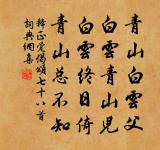 青山白雲父
白雲青山兒
白雲終日倚
青山总不知
釋正覺偈頌七十八首
詞典網集